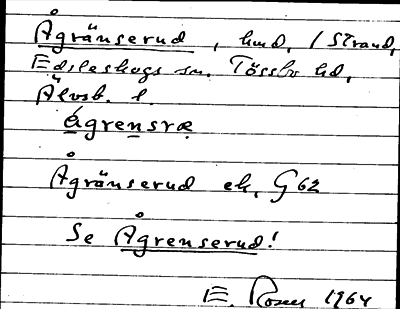 Ågränserud, hmd, / Strand,
Edsleskogs sn. Tössbo hd,
Älvsb. l.
ágrensræ
Ågränserud ek. G 62
Se Ågrenserud!
E. Rosen 1964